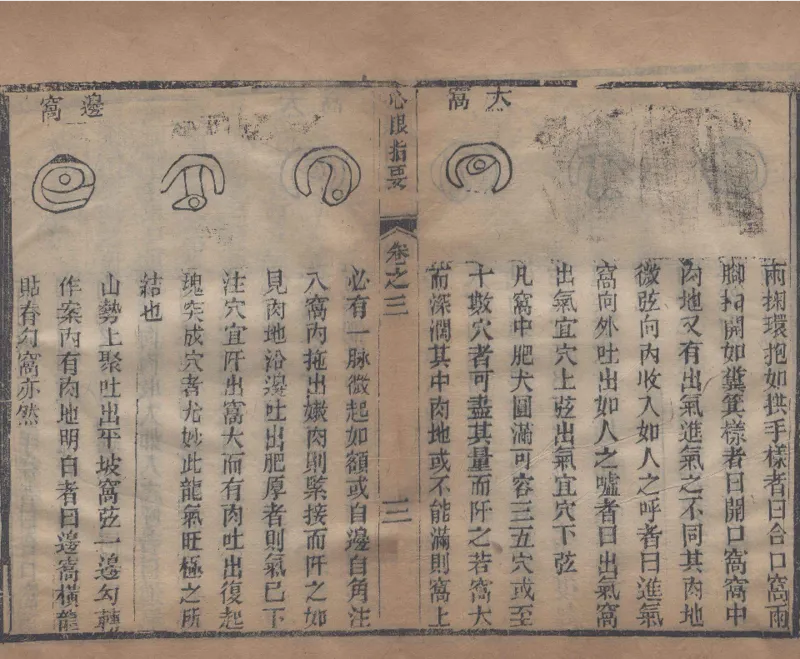 兩掬環抱如拱手樣者曰合口窩兩
脚開如糞箕樣者曰開口窩窩中
肉地又有出氣進氣之不同其肉地
微弦向內收入如人之呼者曰進氣
窩向外吐出如人之噓者曰出氣窩
出氣宜穴上弦出氣宜穴下弦
大窩
凡窩中肥大圓滿可容三五穴或至
十數穴者可盡其量而阡之若窩大
而深濶其中肉地或不能滿則窩上
心眼指要
卷之三
三
必有一脉微起如額或自邊自角注
入窩內拖出嫩肉則緊接而阡之如
見肉地沿邊吐出肥厚者則氣已下
注穴宜阡出窩大而有肉吐出復起
瑰突成穴者尤妙此龍氣旺極之所
結也
邊窩
山勢上聚吐出平坡窩弦一邊勾轉
作案內有肉地明白者曰邊窩橫龍
貼脊勾窩亦然